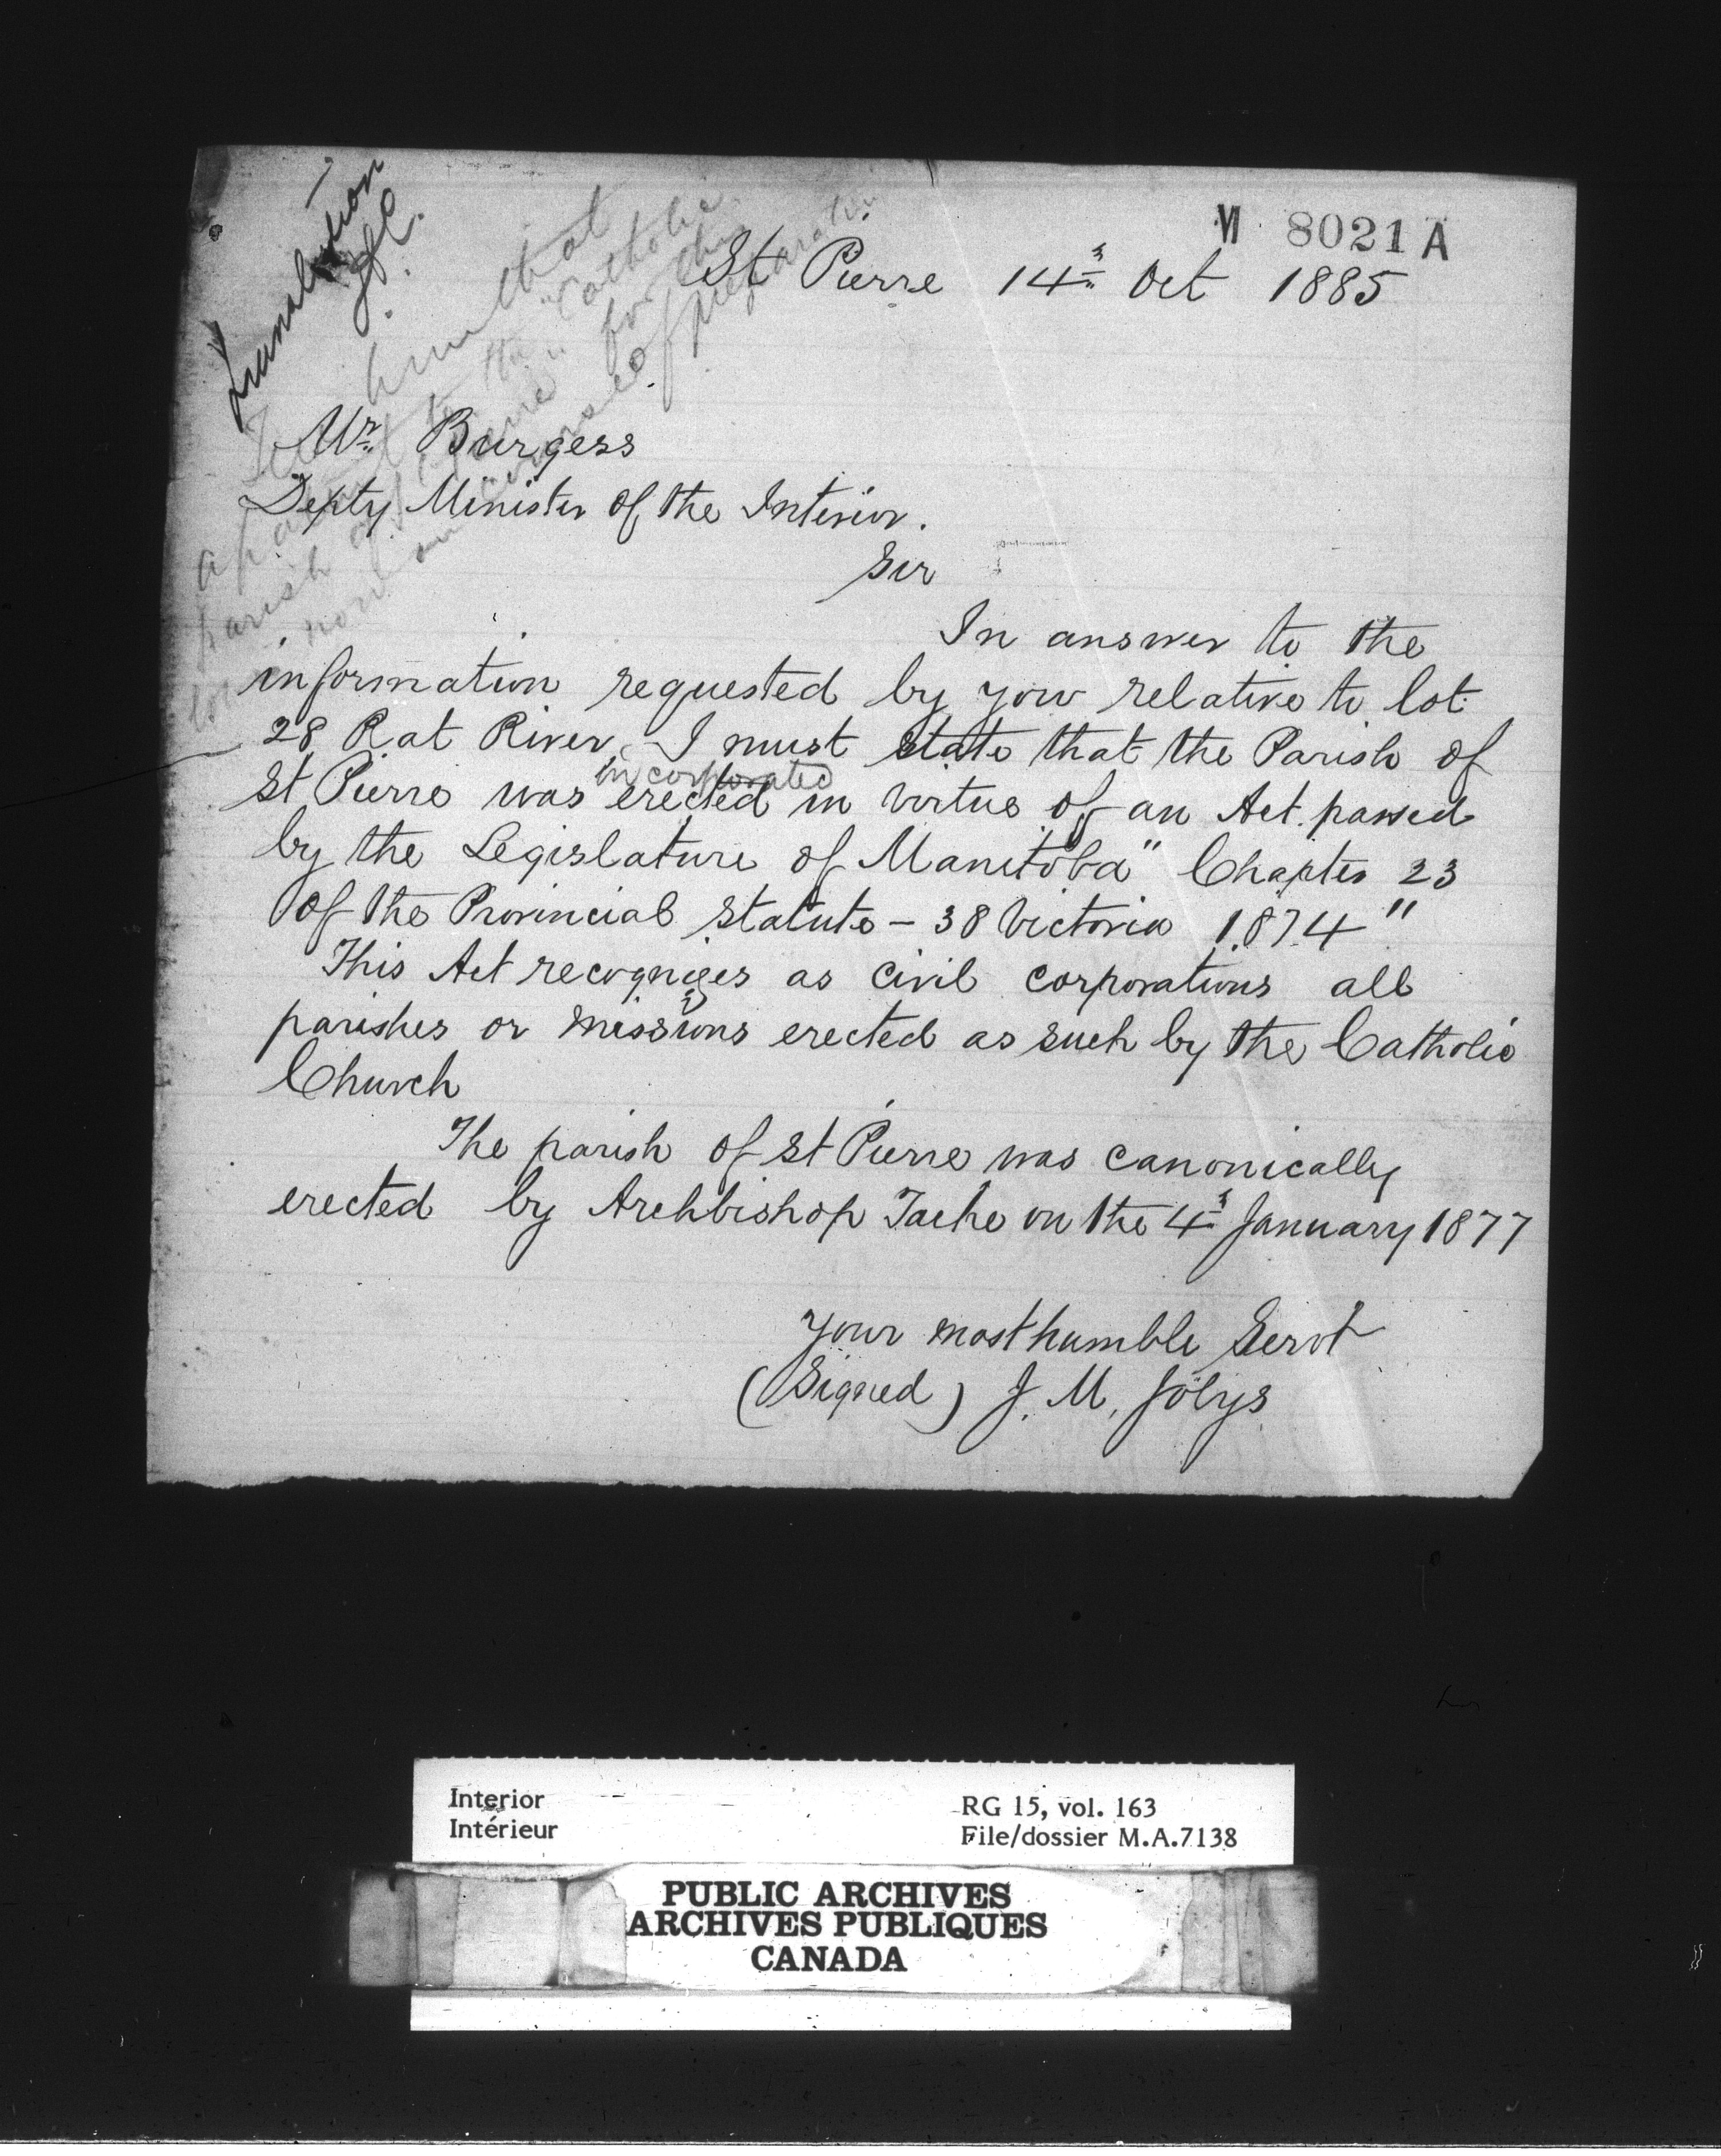 M 8021 A
Translation
St Pierre 14th Oct 1885
Tell him that
a patent to the "Catholic
parish of St Pierre" for this
now in course of preparation
Mr Burgess
Depty Minister of the Interior.
Sir
In answer to the
information requested by you relative to lot
28 Rat River, I must state that the Parish of
incorporated
St Pierre was erected in virtue of an Act passed
by the Legislature of Manitoba "Chapter 23
of the Provincial Statute - 38 Victoria 1874"
This Act recognizes as civil corporations all
parishes or missions erected as such by the Catholic
Church
The parish of St Pierre was canonically
erected by Archbishop Tache on the 4th January 1877
Your most humble Servt
(Signed) J. M. Jolys
Interior
Intérieur
RG 15, vol. 163
File/dossier M.A.7138
PUBLIC ARCHIVES
ARCHIVES PUBLIQUES
CANADA